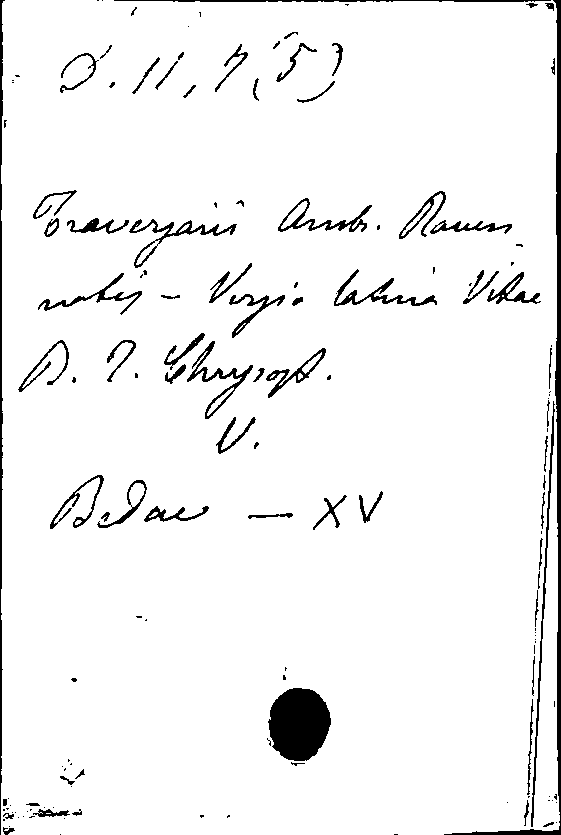 D. 11, 7 (5)
Traversarii Amb. Raven
natis – Versio latina Vitae
D. I. Chrysost.
V.
Bedae — XV